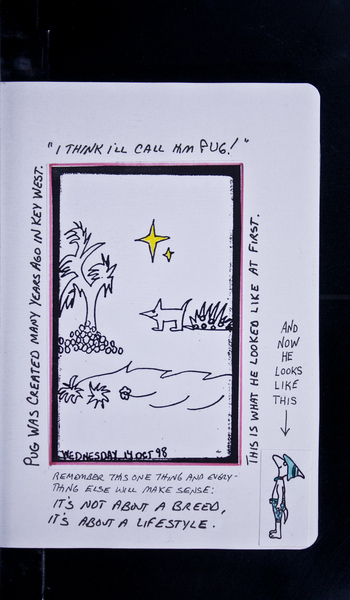 "I THINK I'LL CALL HIM PUG!"
PUG WAS CREATED MANY YEARS AGO IN KEY WEST.
THIS IS WHAT HE LOOKED LIKE AT FIRST.
AND
NOW
HE
LOOKS
LIKE
THIS
WEDNESDAY. 14 OCT 98
REMEMBER THIS ONE THING AND EVERY-
THING ELSE WILL MAKE SENSE:
IT'S NOT ABOUT A BREED,
IT'S ABOUT A LIFESTYLE.